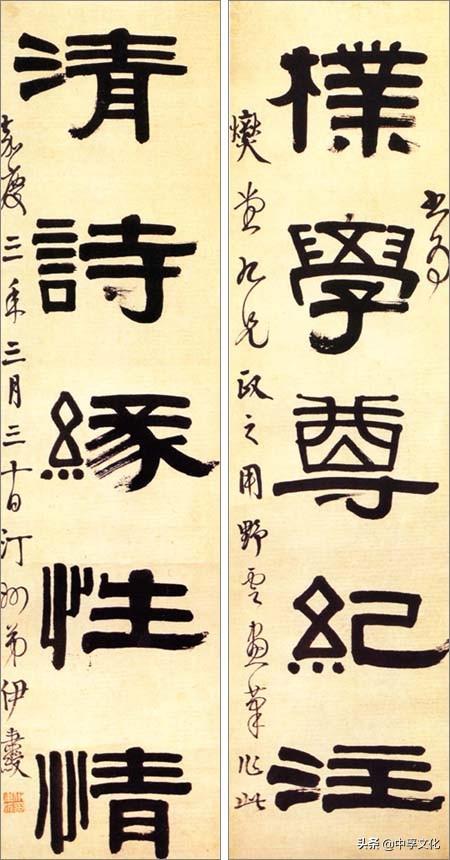 樸學尊紀注
書為
堂九兄政之用野雲畫筆作此
清詩緣性情
嘉慶三年三月三十日汀州弟伊秉綬
头条@中孚文化